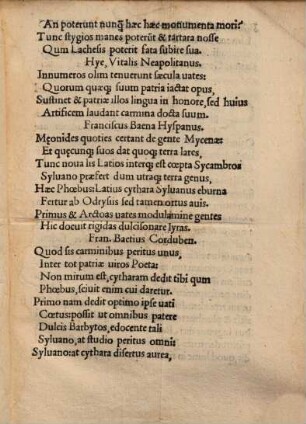 An poterunt nunq̃ hæc hæc monumenta mori?
Tunc stygios manes poterũt & tartara nosse
Qum Lachesis poterit fata subire sua.
Hye, Vitalis Neapolitanus.
Innumeros olim tenuerunt sæcula uates:
Quorum quæq; suum patria iactat opus,
Sustinet & patriæ illos lingua in honore, sed huius
Artificem laudant carmina docta suum.
Franciscus Baena Hyspanus.
Męonides quoties certant de gente Mycenæ
Et quęcunq; suos dat quoq; terra lares,
Tunc noua lis Latios interq; est cœpta Sycambros
Syluano præfert dum utraq; terra genus,
Hæc Phœbus: Latius cythara Syluanus eburna
Fertur ab Odrysiis sed tamen ortus auis.
Primus & Arctoas uates modulamine gentes
Hic docuit rigidas dulcisonare lyras.
Fran. Baetius Corduben.
Quod sis carminibus peritus unus,
Inter tot patriæ uiros Poeta:
Non mirum est, cytharam dedit tibi qum
Phœbus, sciuit enim cui daretur.
Primo nam dedit optimo ipse uati
Cœtus: possit ut omnibus patere
Dulcis Barbytos, edocente tali
Syluano, at studio peritus omni:
Syluano: at cythara disertus aurea,